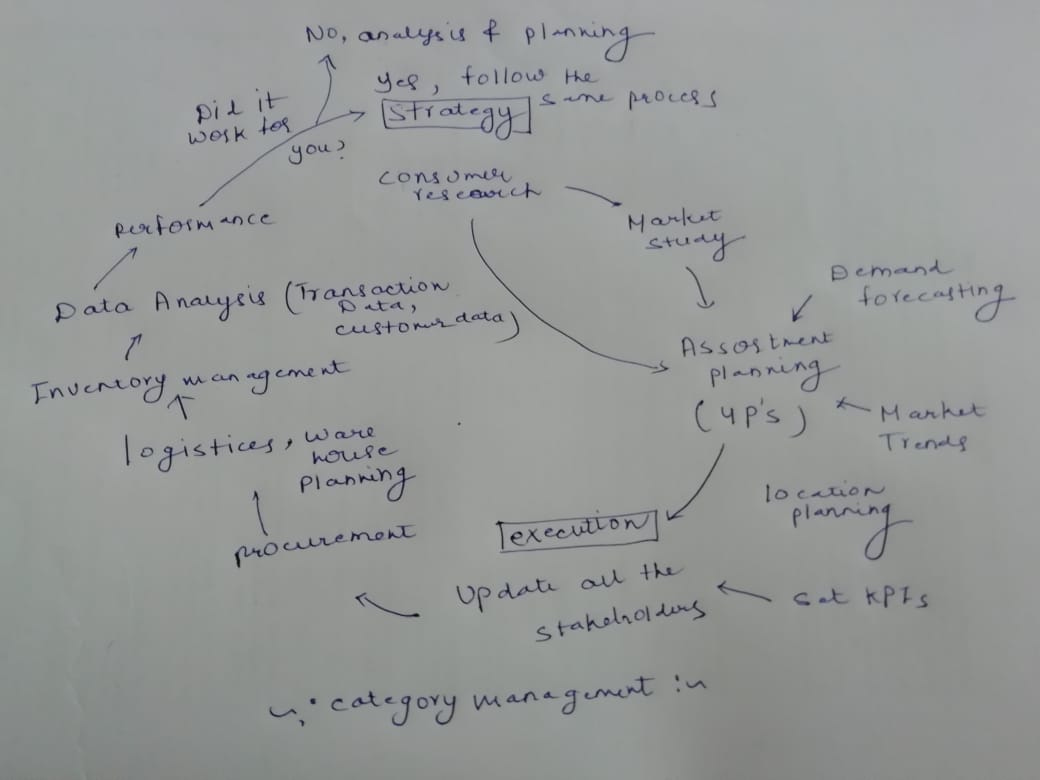 No, analysis & planning
Yes, follow the
same process
Strategy
Did it
work for
you?
consumer
research
Market
study
performance
Demand
forecasting
Data Analysis (Transaction
Data,
customer data)
Assortment
planning
(4P's)
Inventory management
Market
Trends
logistices, ware
house
planning
location
planning
execution
procurement
Update all the
stakeholders
Set KPIs
~: category management :~